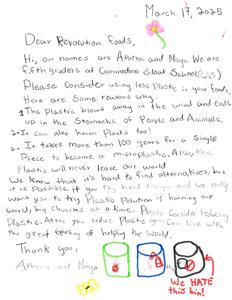 March 17, 2025
Dear Revolution foods,
Hi, our names are Athena and Maya. We are
fifth graders at Commodore Sloat School (CSS)
Please Consider using less Plastic in your foods,
Here are Some reasons why.
1. The Plastic blows away in the wind and ends
up in the Stomachs of People and Animals.
2. It can also harm Plants too!
3. It takes more than 100 years for a Single
Piece to become a microplastic. Also, the
Plastic will never leave our world
We know that it's hard to find alternatives, but
it is Possible if you try hard enough and we really
want you to try Plastic Polution is harming our
world, big chunches at a time. Please Consider reducing
Plastic. After you reduce Plastic you can live with
the great feeling of helping the world.
Thank you,
Athena and Maya
We HATE
this bin!